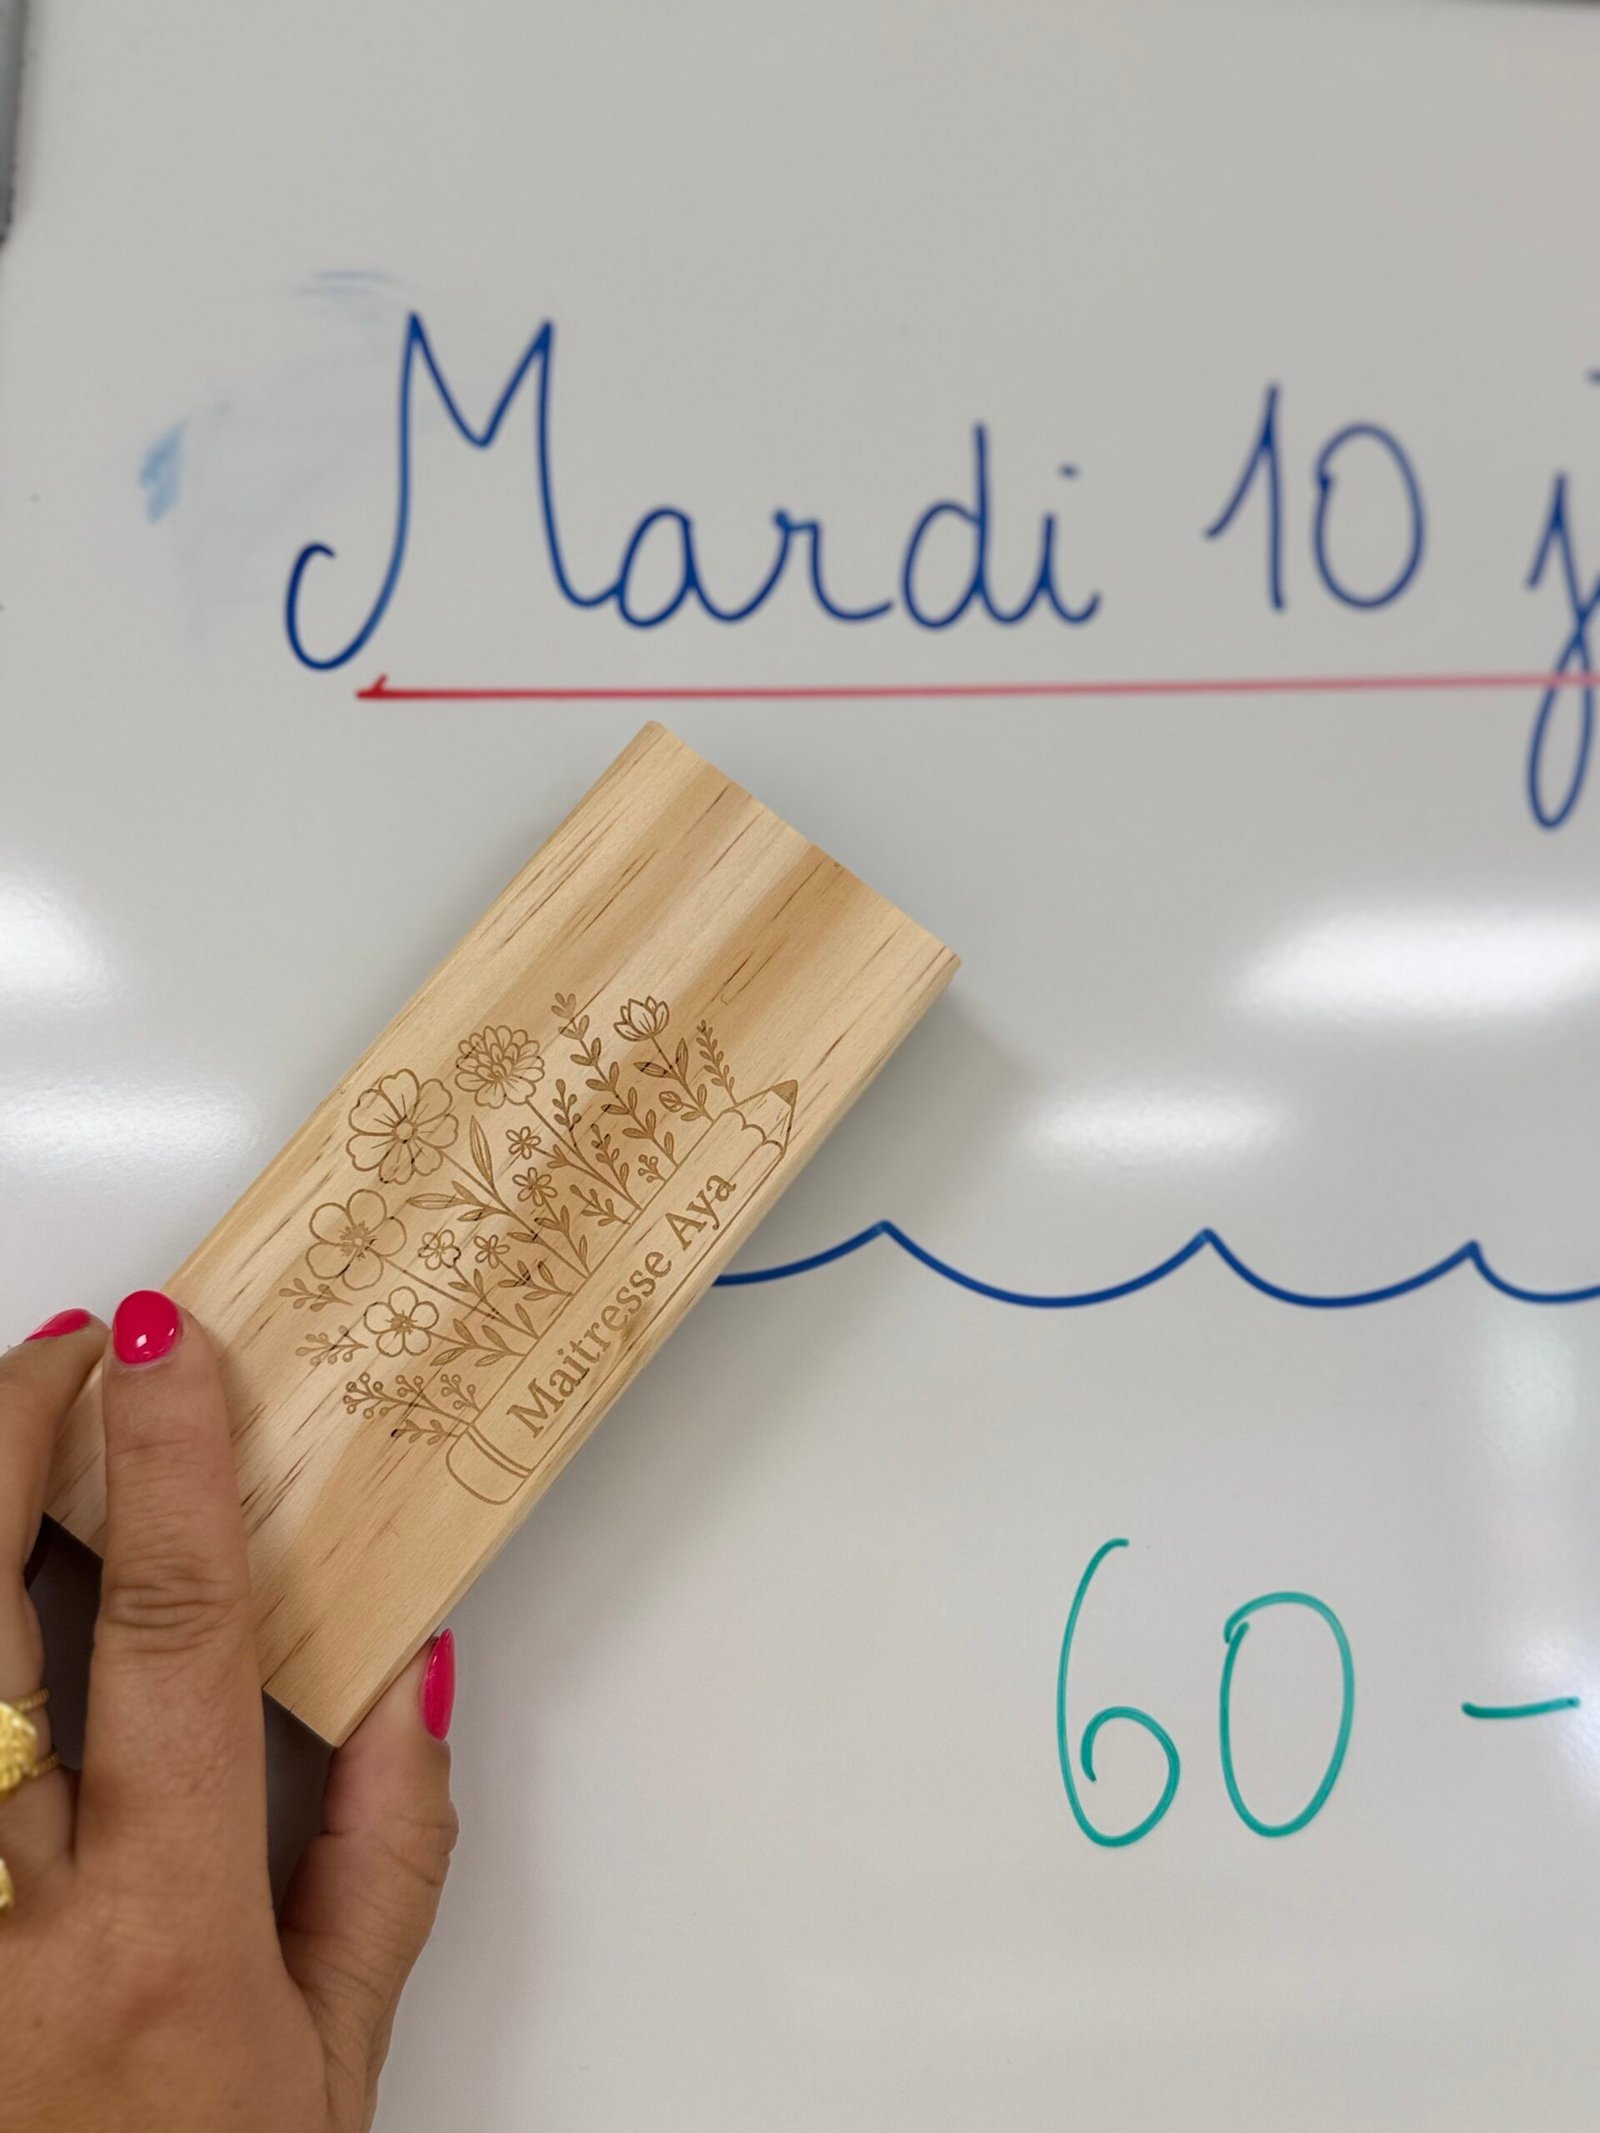 Mardi 10 j
Maitresse Aya
60 -